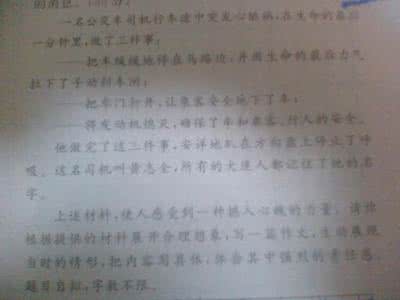 一名公交车司机行车途中突发心脏病，在生命的最后
一分钟里，做了三件事：
——把车缓缓地停在马路边，并用生命的最后力气
拉下了手动刹车闸；
——把车门打开，让乘客安全地下了车；
——将发动机熄灭，确保了车和乘客、行人的安全。
他做完了这三件事，安详地趴在方向盘上停止了呼
吸。这名司机叫黄志全，所有的大连人都记住了他的名
字。
上述材料，使人感受到一种撼人心魄的力量。请你
根据提供的材料展开合理想象，写一篇作文，生动展现
当时的情形，把内容写具体，体会其中强烈的责任感。
题目自拟，字数不限。